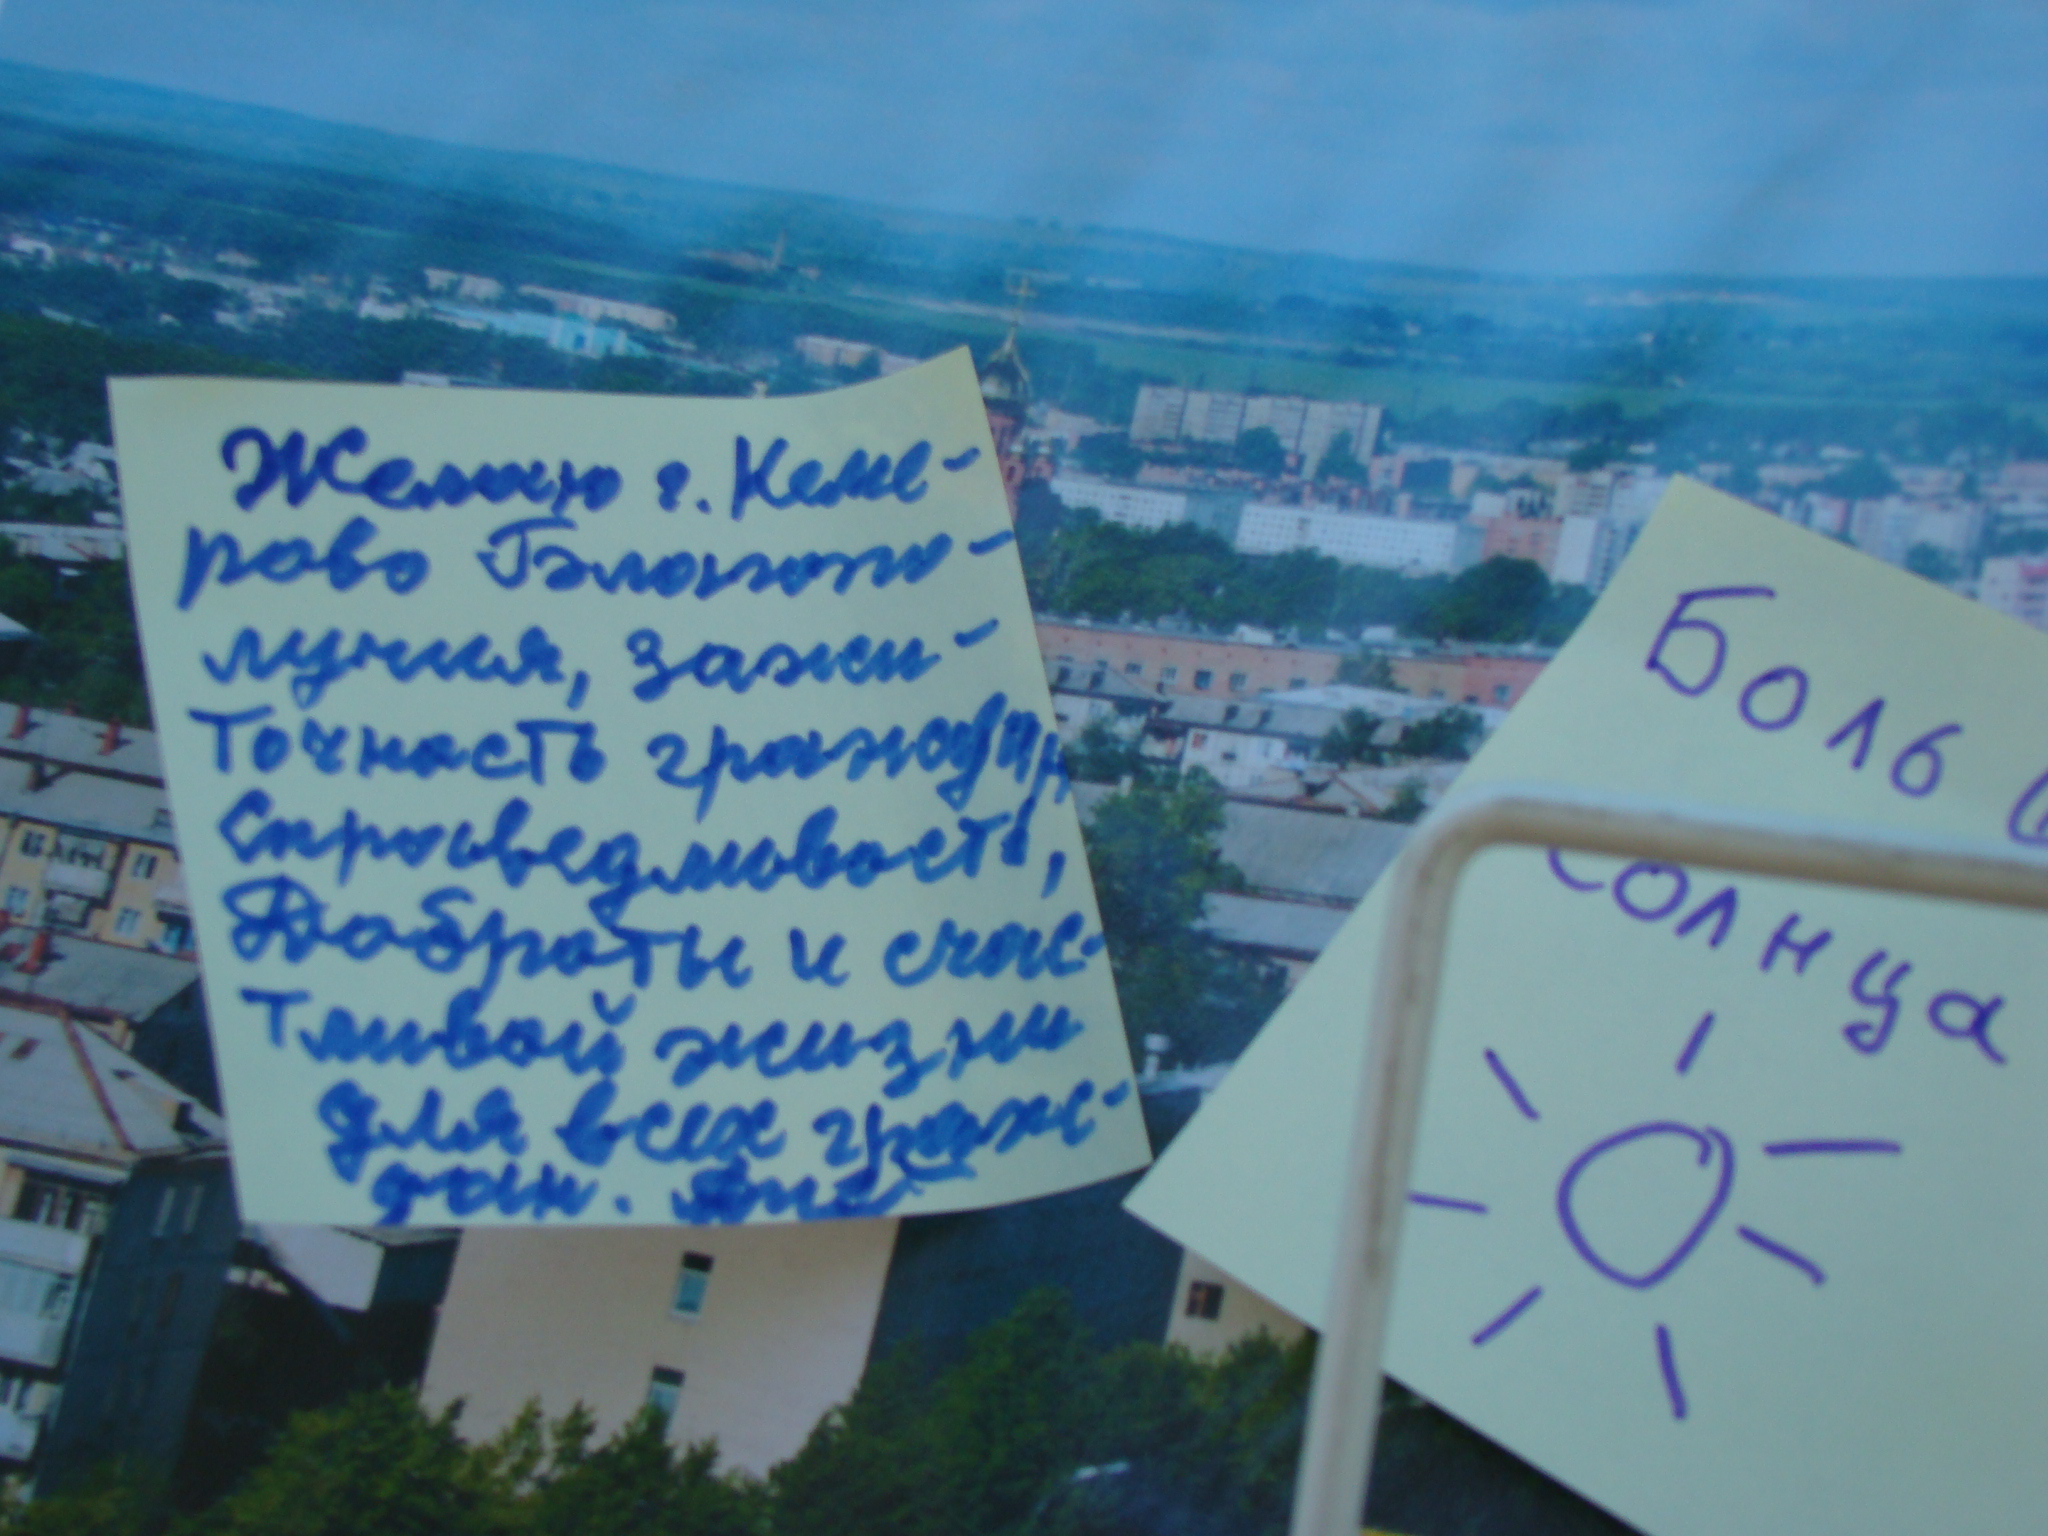 Желаю г. Кеме-
рово Благопо-
лучия, зажи-
точность граждан,
Справедливость,
Доброты и счас-
тливой жизни
для всех граж-
дан.
Боль
Солнца